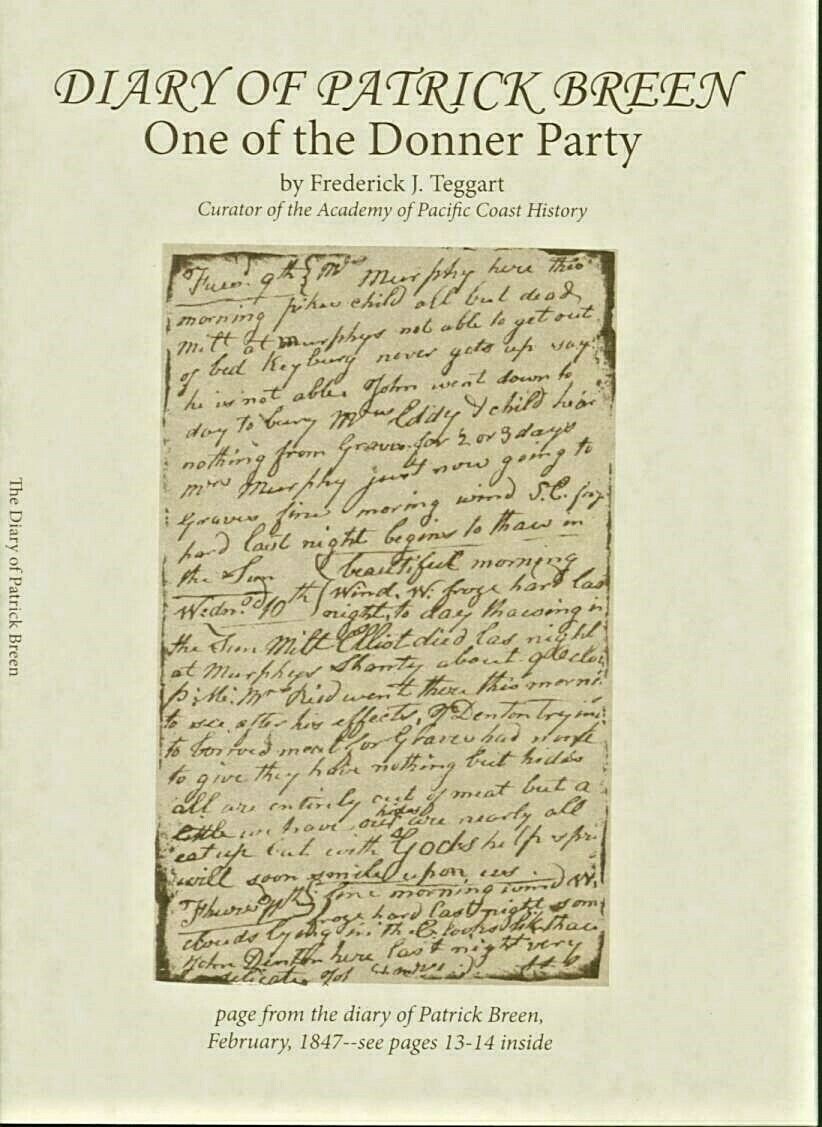 DIARY OF PATRICK BREEN
One of the Donner Party
by Frederick J. Teggart
Curator of the Academy of Pacific Coast History
Tuesd 9th Mrs Murphy here this
morning pikes child all but dead
Milt at Murphys not able to get out
of bed Keyburg never gets up says
he is not able. John went down to
day to bury Mrs Eddy & child hear
nothing from Graves for 2 or 3 days
Mrs Murphy just now going to
Graves fine moring wind S.E. froze
hard last night begins to thaw in
the Sun
beautiful morning
Wednd 10th Wind. W. froze hard las
night, to day thawing in
the Sun Milt Elliot died las night
at Murphys Shanty about 9 oclo
p: M: Mrs Reid went there this morni
to see after his effects, J Denton tryin
to borrow meat for Graves had none
to give they have nothing but hides
all are entirely out of meat but a
little we have our hides are nearly all
eat up but with Gods help spr
will soon smile upon us.
Thursd 11th fine morning wind W.
froze hard last night som
clouds lying in the E. looks like thaw
John Denton here last night very
delicate.
page from the diary of Patrick Breen,
February, 1847--see pages 13-14 inside
The Diary of Patrick Breen